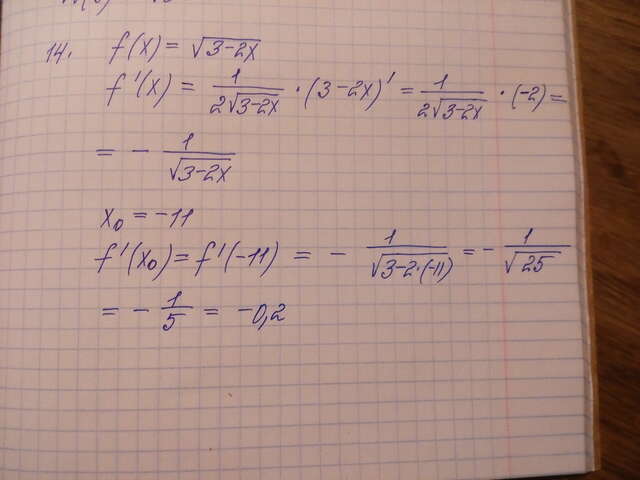 14. f(x) = √3-2x
f'(x) = 1/2√3-2x · (3-2x)' = 1/2√3-2x · (-2) =
= - 1/√3-2x
x₀ = -11
f'(x₀) = f'(-11) = - 1/√3-2·(-11) = - 1/√25
= - 1/5 = -0,2